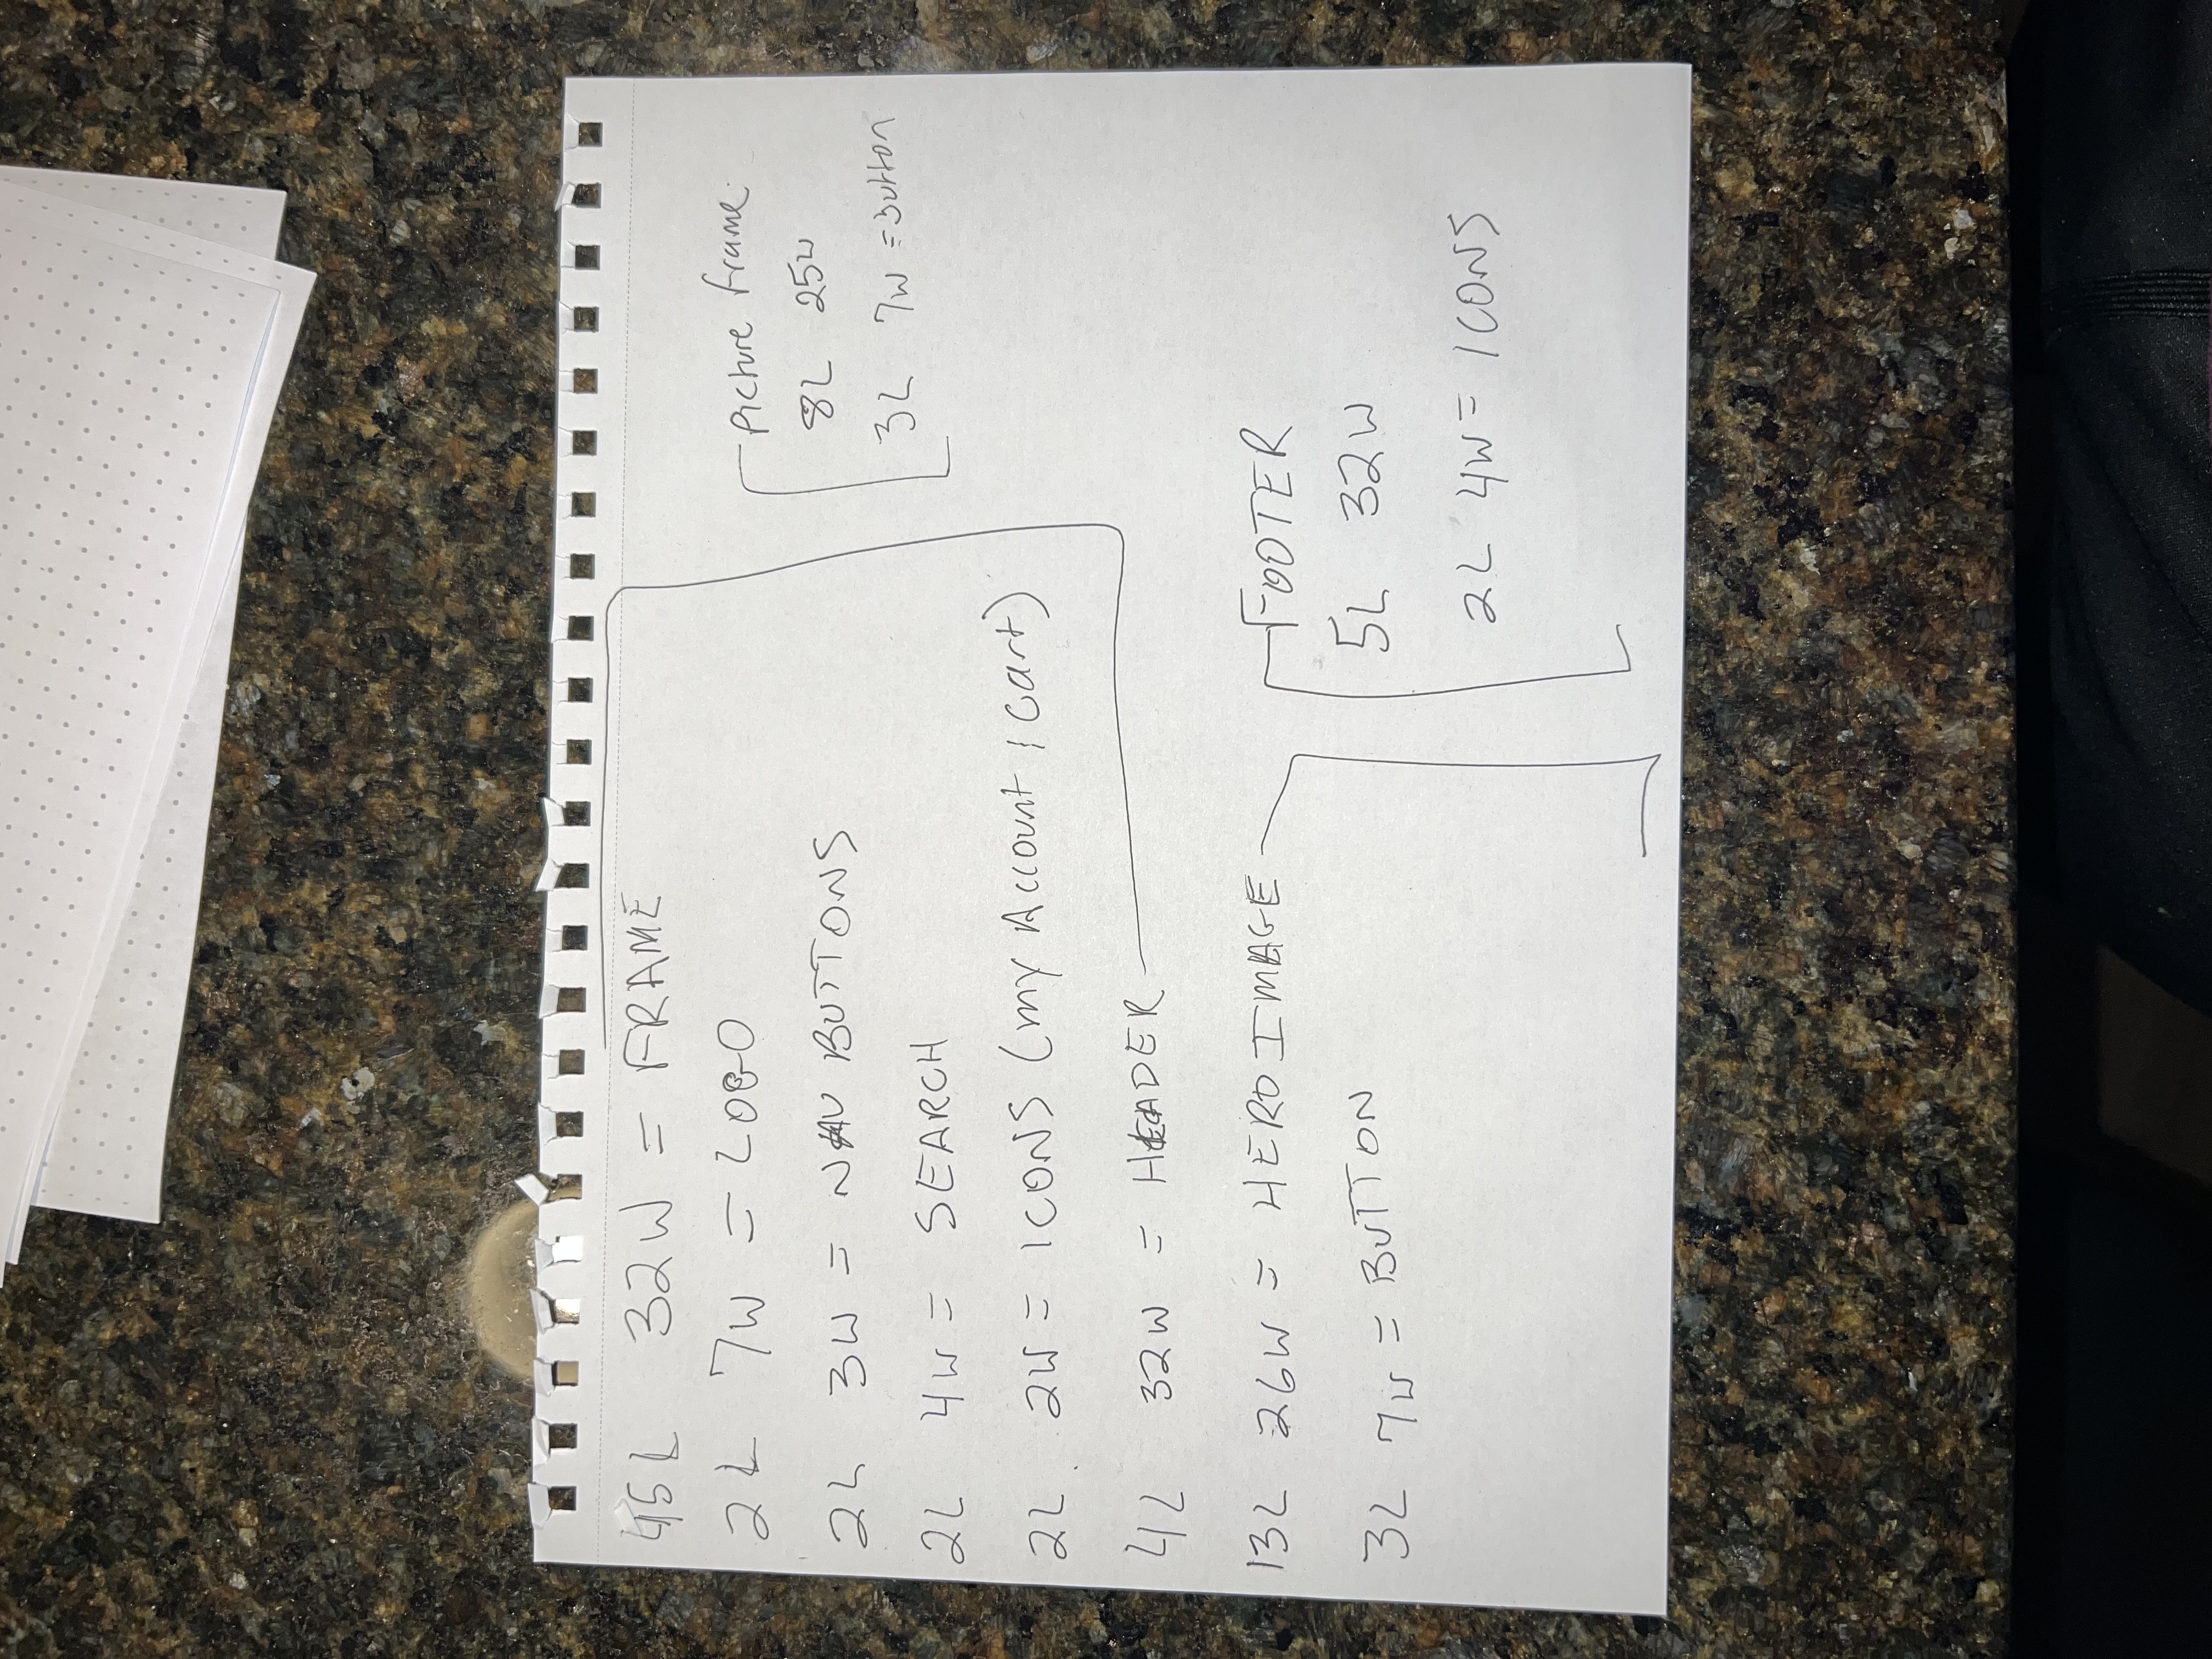 45L 32W = FRAME
2L 7W = LOGO
2L 3W = NAV BUTTONS
2L 4W = SEARCH
2L 2W = ICONS (my Account ; Cart)
4L 32W = HEADER
13L 26W = HERO IMAGE
3L 7W = BUTTON
Picture frame
8L 25W
3L 7W = Button
FOOTER
5L 32W
2L 4W = ICONS